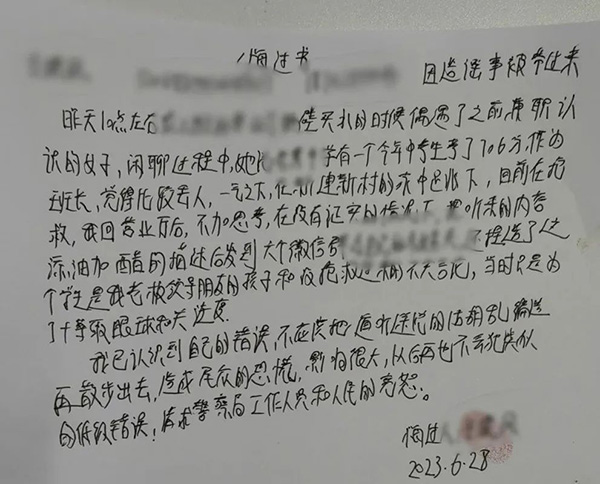 悔过书
因造谣事被带过来
昨天10点左右 买礼的时候偶遇了之前兼职认
识的女子，闲聊过程中，她说 学有一个今年中考生考了706分，作为
班长，觉得比较丢人，一气之下，在 建新村的家中跳下，目前在抢
救，我回营业厅后，不加思考，在没有证实的情况下 听来的内容
添油加醋的描述后发到大个微信群 捏造了这
个学生是我老板父子朋友的孩子和没抢救过来的不实言论，当时只是为
了争取眼球和关注度
我已认识到自己的错误，不应该把道听途说的话胡乱编造
再散步出去，造成民众的恐慌，影响很大，从后再也不会犯类似
的低级错误，请求警察局工作人员和人民的宽恕。
悔过人
2023.6.28